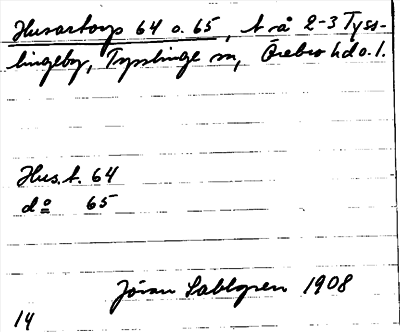 Husartorp 64 o. 65, t. rå 2-3 Tyss-
lingeby, Tysslinge sn, Örebro hd o. l.
Hus.t. 64
do 65
Jöran Sahlgren 1908
14